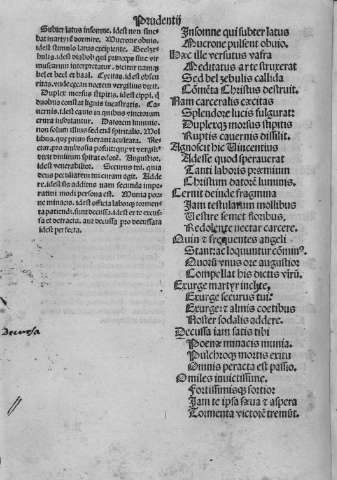 Prudentij
Subter latus insomne. idest non sine
bat martyrē dormire. Mucrone obuio.
idest stimulo latus excipiente. Beelze
bulis. idest diaboli qui princeps siue vir
muscarum interpretatur. dicitur namq;
bel et beel et baal. Cecitas. idest obscu
ritas. vnde cecam noctem vergilius dixit.
Duplex morsus stipitis. idest cippi. q̄
duobus constat lignis incastratis. Ca
uernis. idest cauis in quibus vinctorum
crura insolantur. Datorem luminis.
non solum illius sed etiā spiritalis. Mol
libus. que prius fuerant aculeata. Nec
tare. pro suauissimo
dixit diuinum spirat odorē. Augustior.
idest venerabilior. Securus tui. quia
deus peculiarem tui curam egit. Adde
re. idest
mini persona est. Munia poe
ne minacis. idest officia laborq; tormen
ta patiendi. sunt decussa. idest et er te excus
sa et detracta. aut decussa pro decussata
idest perfecta.
Insomne qui subter latus
Mucrone pulsent obuio.
Hæc ille versutus vafra
Meditatus arte struxerat
Sed belzebulis callida
Cōmēta Christus destruit.
Nam carceralis cæcitas
Splendore lucis fulgurat:
Duplexq; morsus stipitis
Ruptis cauernis dissilit.
Agnoscit hic Uincentius
Adesse quod sperauerat
Tanti laboris præmium
Christum datorē luminis.
Cernit deinde fragmina
Iam testularum mollibus
Uestire semet floribus.
Redolente nectar carcere.
Quin & frequentes angeli
Stant: ac loquuntur cōminꝰ.
Quorū vnus ore augustior
Compellat his dictis virū.
Exurge martyr inclyte,
Exurge securus tui:
Exurge: & almis coetibus
Noster sodalis addere.
Decussa iam satis tibi
Poenæ minacis munia.
Pulchroq; mortis exitu
Omnis peracta est passio.
O miles inuictissime.
Fortissimisq; fortior
Iam te ipsa sæua & aspera
Tormenta victorē tremūt.
Decussa